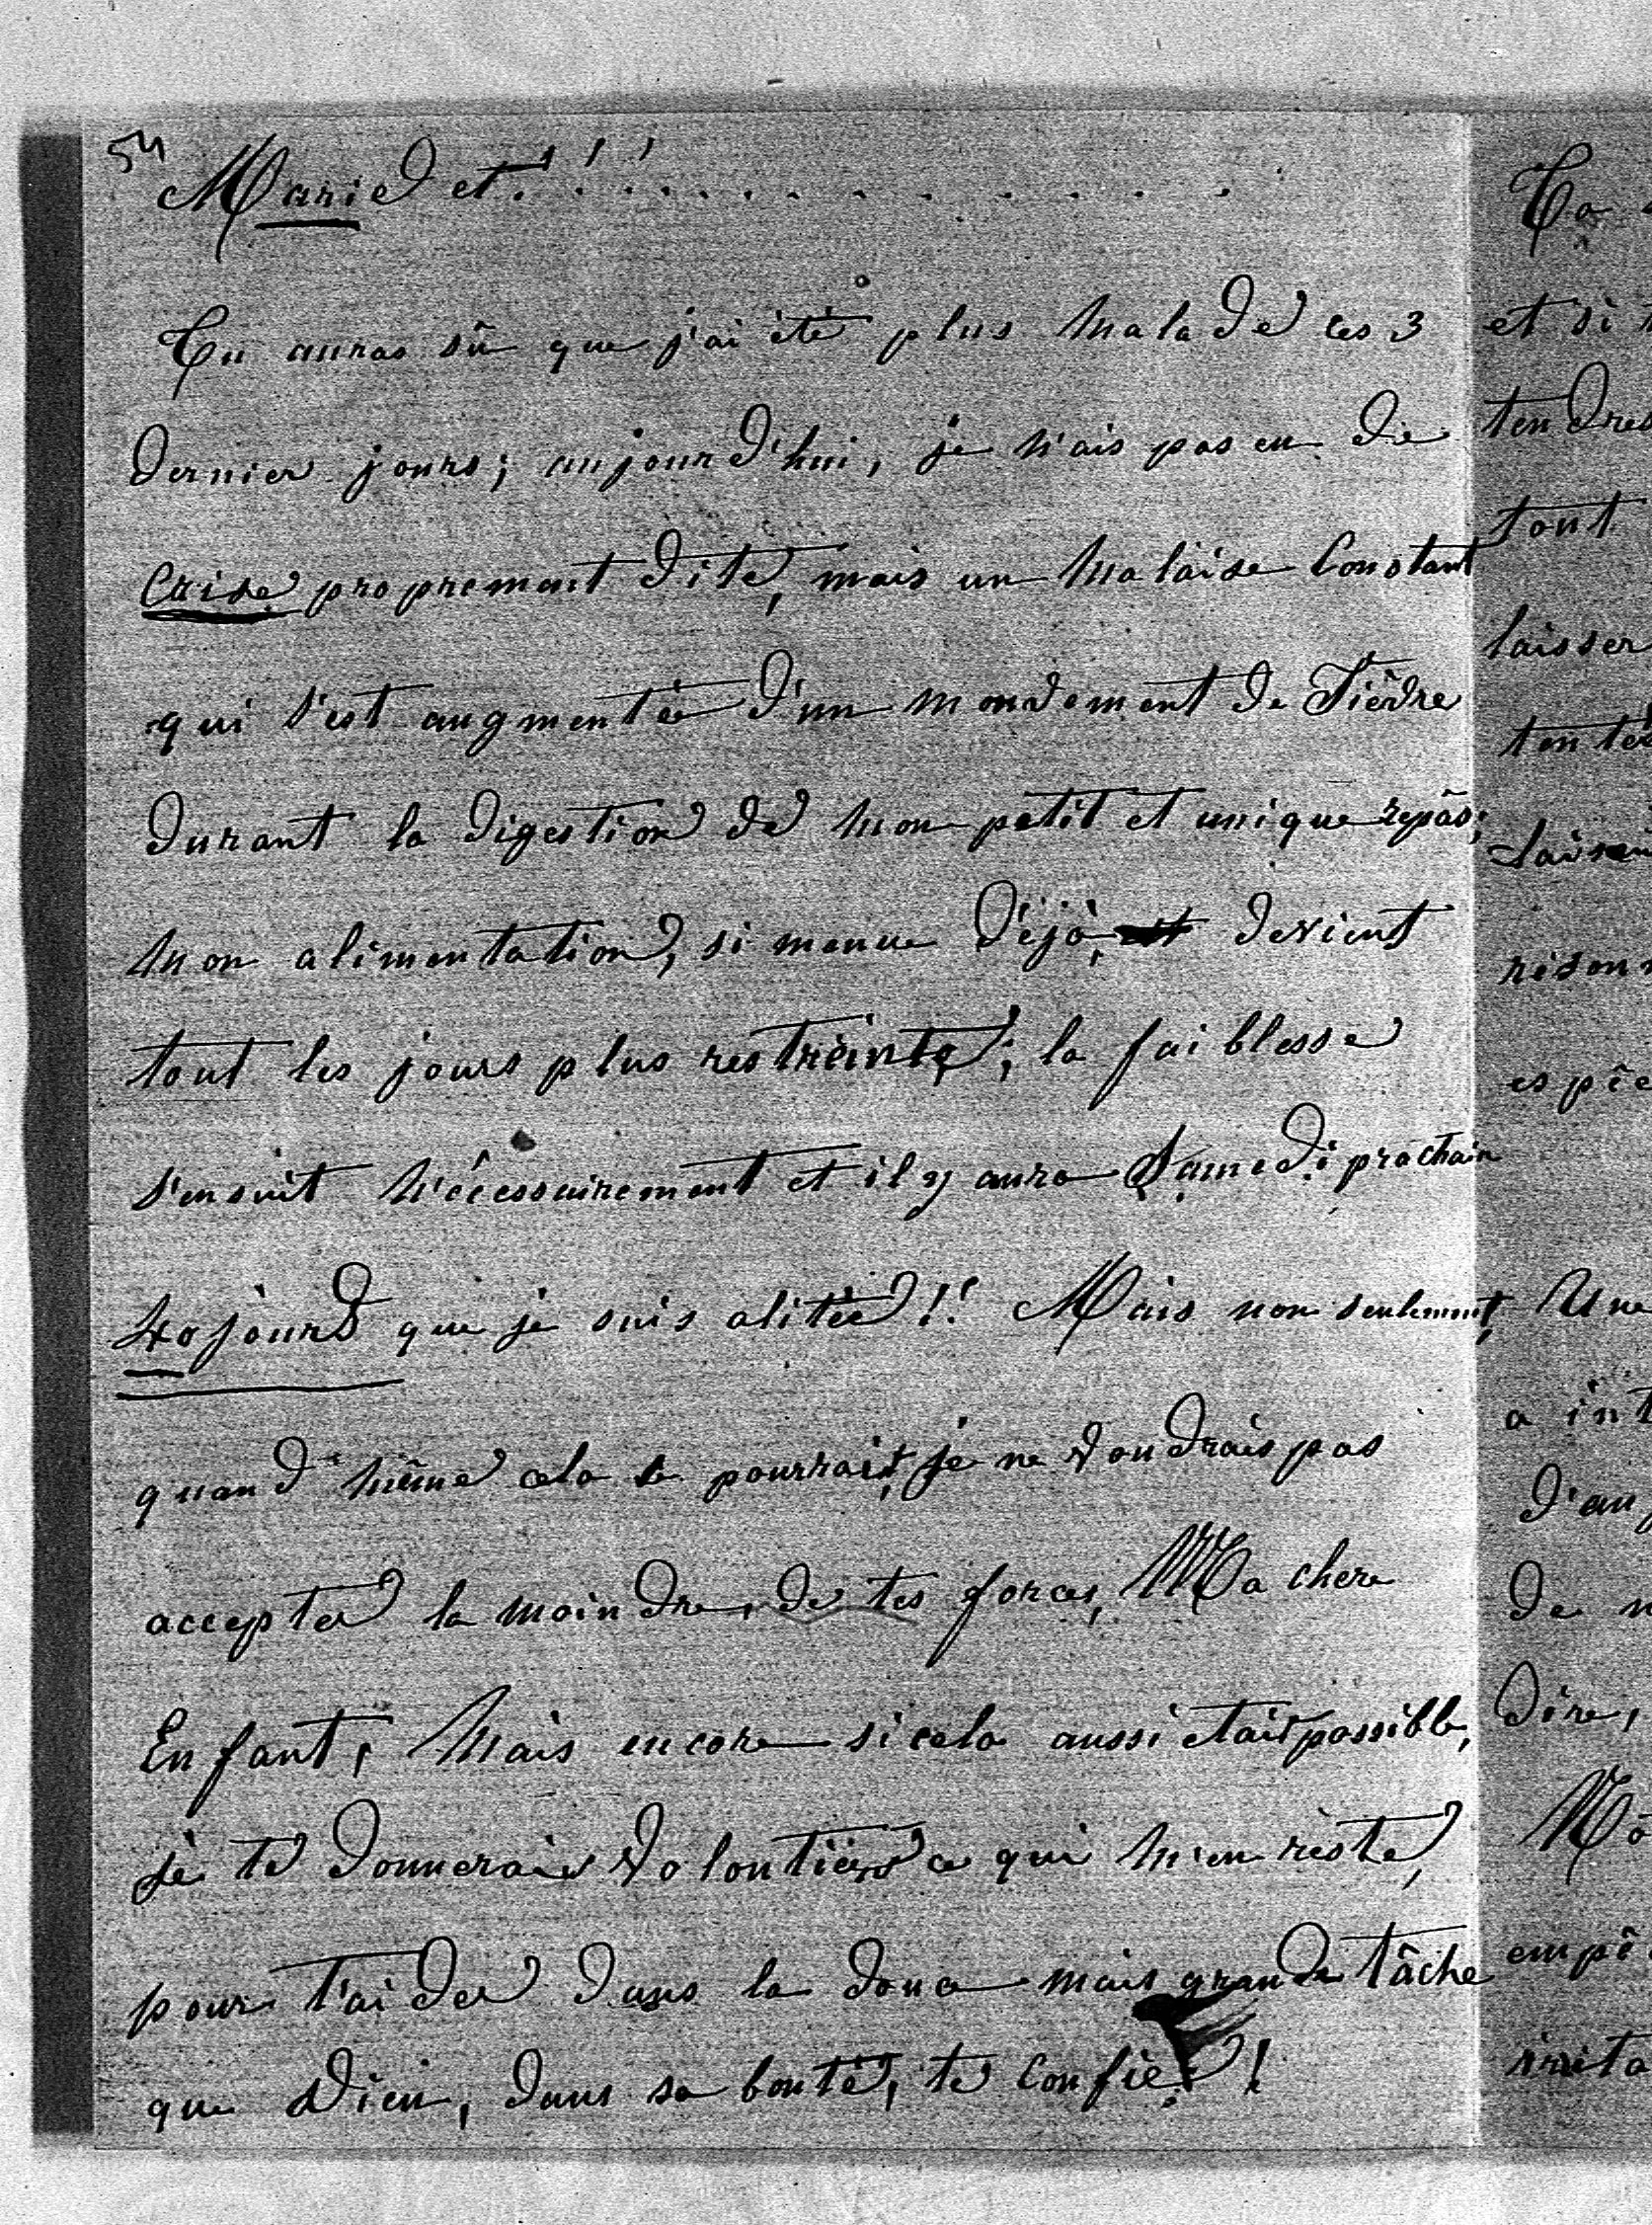 54
Marie et! ! ! . . . . . . . . . . .
Tu auras sû que j'ai été plus malade ces 3
dernier jours; aujourd'hui, je n'ais pas eu de
Crise proprement dite, mais un malaise Constant
qui s'est augmentée d'un mouvement de Fièvre
durant la digestion de mon petit et unique repâs;
mon alimentation, si menue déjà, devient
tout les jours plus restreinte; la faiblesse
s'ensuit nécessairement et il y aura Samedi prochain
40 jours que je suis alitée!! Mais non seulement,
quand même cela se pourrait, je ne voudrais pas
accepter la moindre, de tes forces, Ma chere
Enfant, Mais encore si cela aussi etait possible,
je te donnerais volontiers ce qui m'en reste,
pour t'aider dans la douce mais grande tâche
que Dieu, dans sa bonté, te confie!
et si
tout
laisser
Une
de
dire,